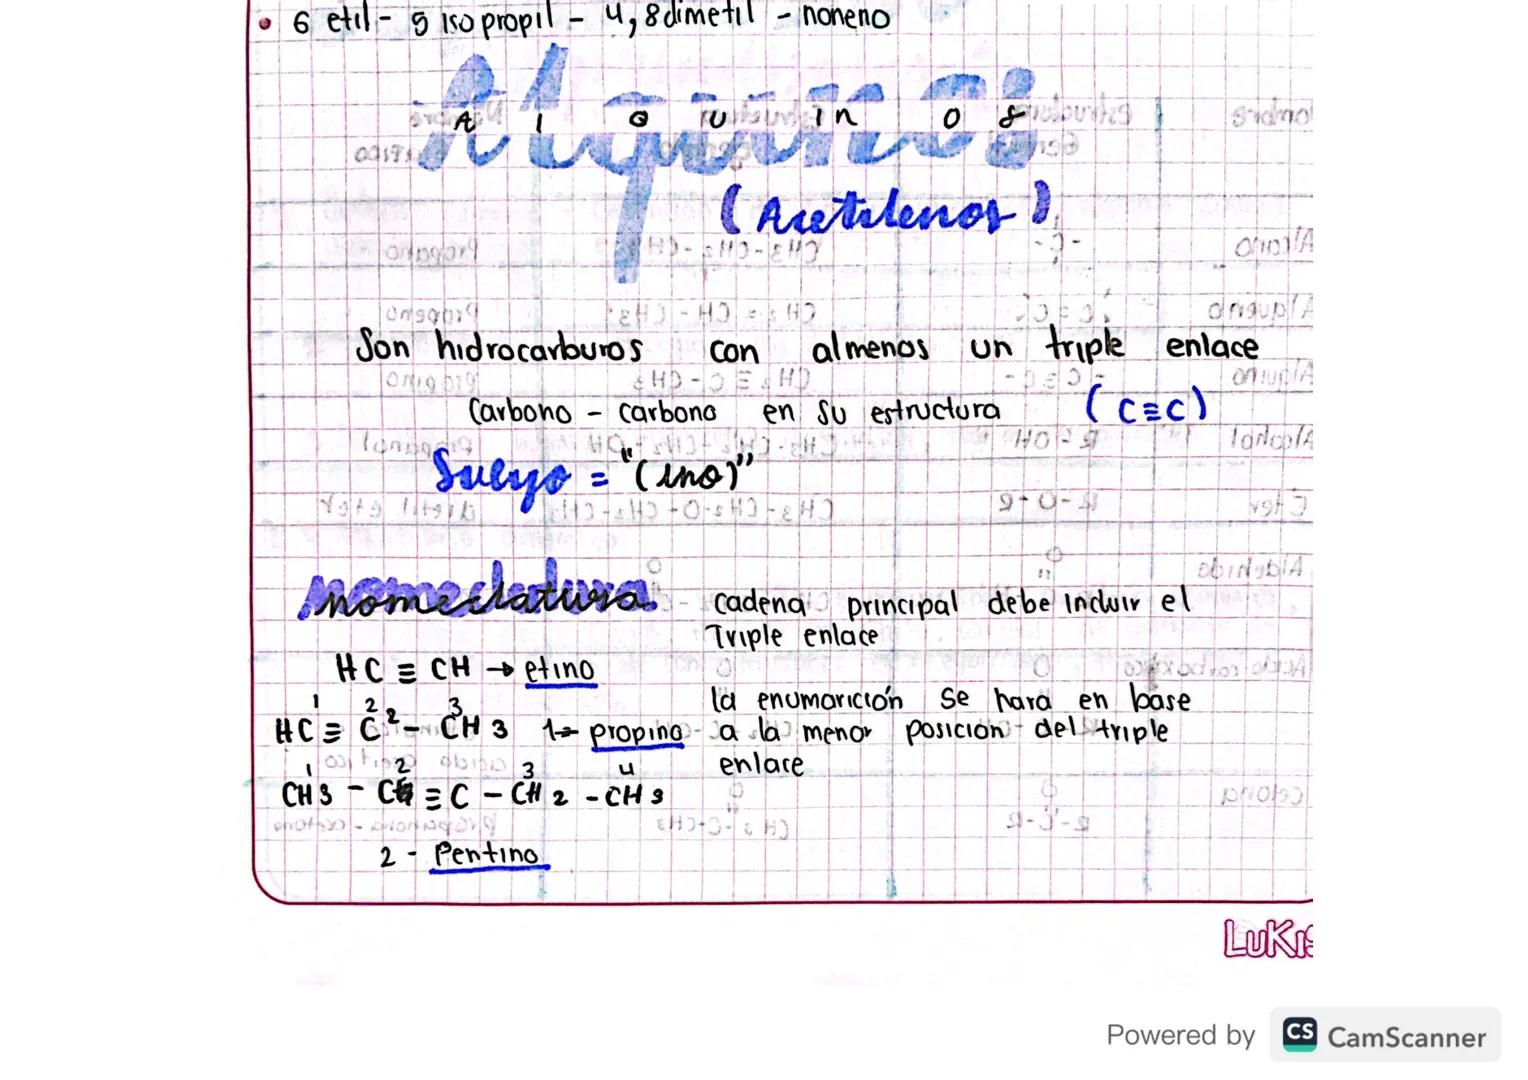 • 6 etil - 5 isopropil - 4,8 dimetil - noneno
Alquinos
(Acetilenos)
Son hidrocarburos con almenos un triple enlace
Carbono - carbono en su estructura (C≡C)
Sufijo = "(ino)"
Nomeclatura
cadena principal debe incluir el
Triple enlace
HC ≡ CH → etino
la enumarición se hara en base
a la menor posición del triple
enlace
1 2 3
HC ≡ C 2 - CH3 1→ propino
1 2 3 4
CH3 - C ≡ C - CH2 - CH3
2 - Pentino
LuKis
Powered by CS CamScanner